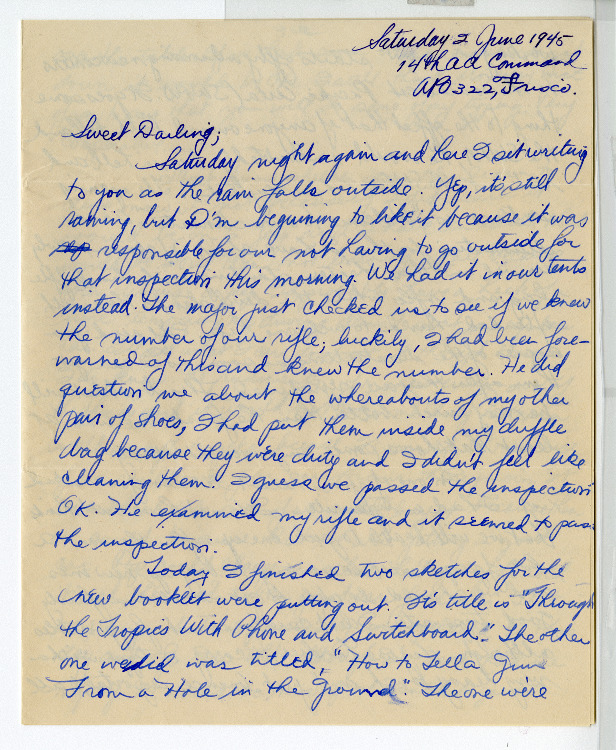 Saturday 2 June 1945
14th AA Command
APO 322, Frisco.
Sweet Darling;
Saturday night again and here I sit writing
to you as the rain falls outside. Yep, it's still
raining, but I'm beginning to like it because it was
responsible for our not having to go outside for
that inspection this morning. We had it in our tents
instead. The major just checked us to see if we knew
the number of our rifle; luckily, I had been fore-
warned of this and knew the number. He did
question me about the whereabouts of my other
pair of shoes, I had put them inside my duffle
bag because they were dirty and I didn't feel like
cleaning them. I guess we passed the inspection
OK. He examined my rifle and it seemed to pass
the inspection.
Today I finished two sketches for the
new booklet were putting out. It's title is "Through
the Tropics With Phone and Switchboard." The other
one we did was titled, "How to Tell a Gun
From a Hole in the Ground". The one we're